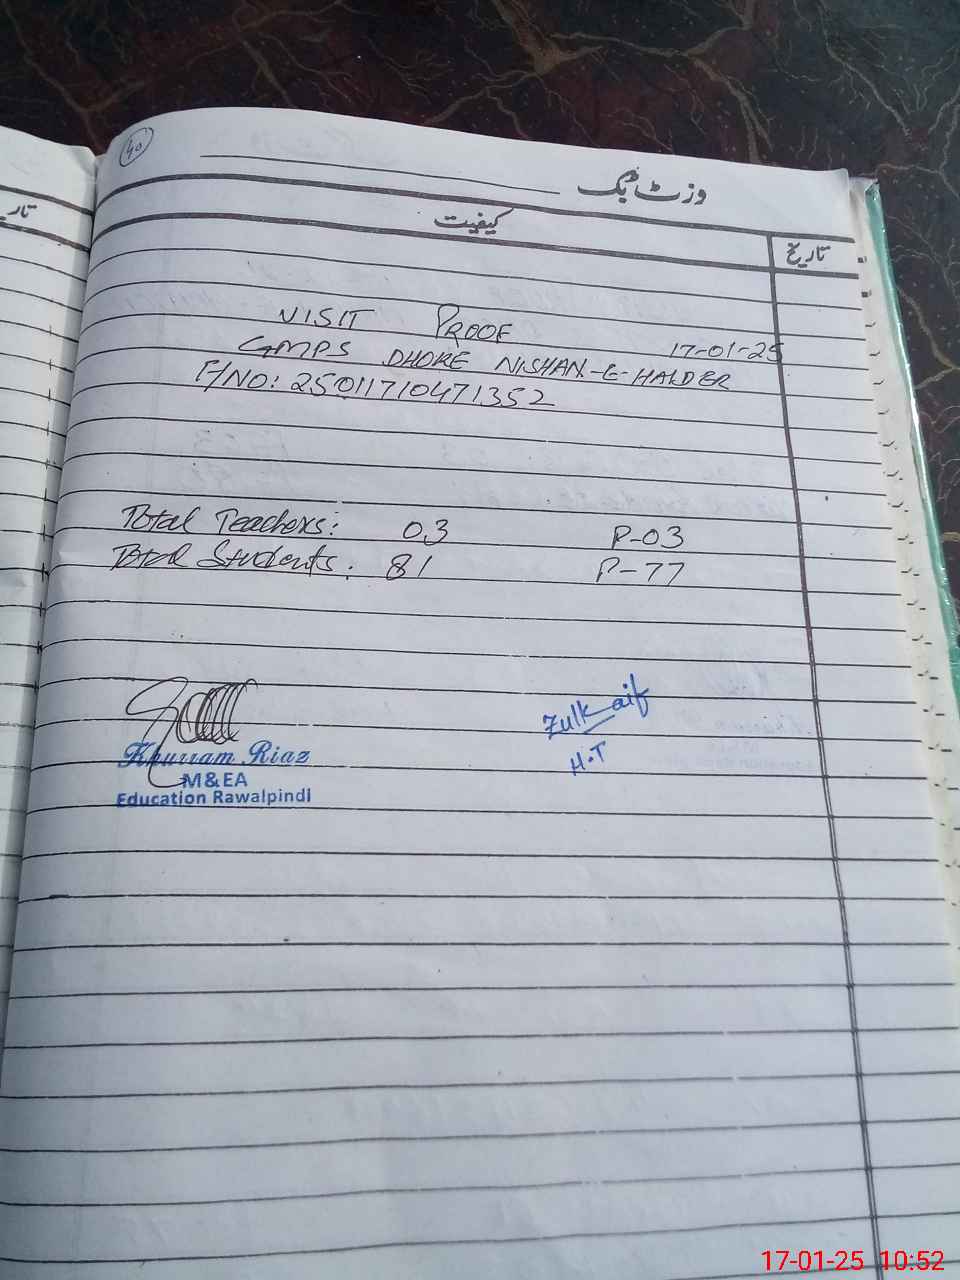 40
وزٹ بک
تاریخ کیفیت
VISIT PROOF
17-01-25
GMPS DHOKE NISHAN-E-HAIDER
F/NO: 25011710471352
Total Teachers: 03 P-03
Total Students: 81 P-77
Zulkaif
H.T
Khurram Riaz
M&EA
Education Rawalpindi
17-01-25 10:52